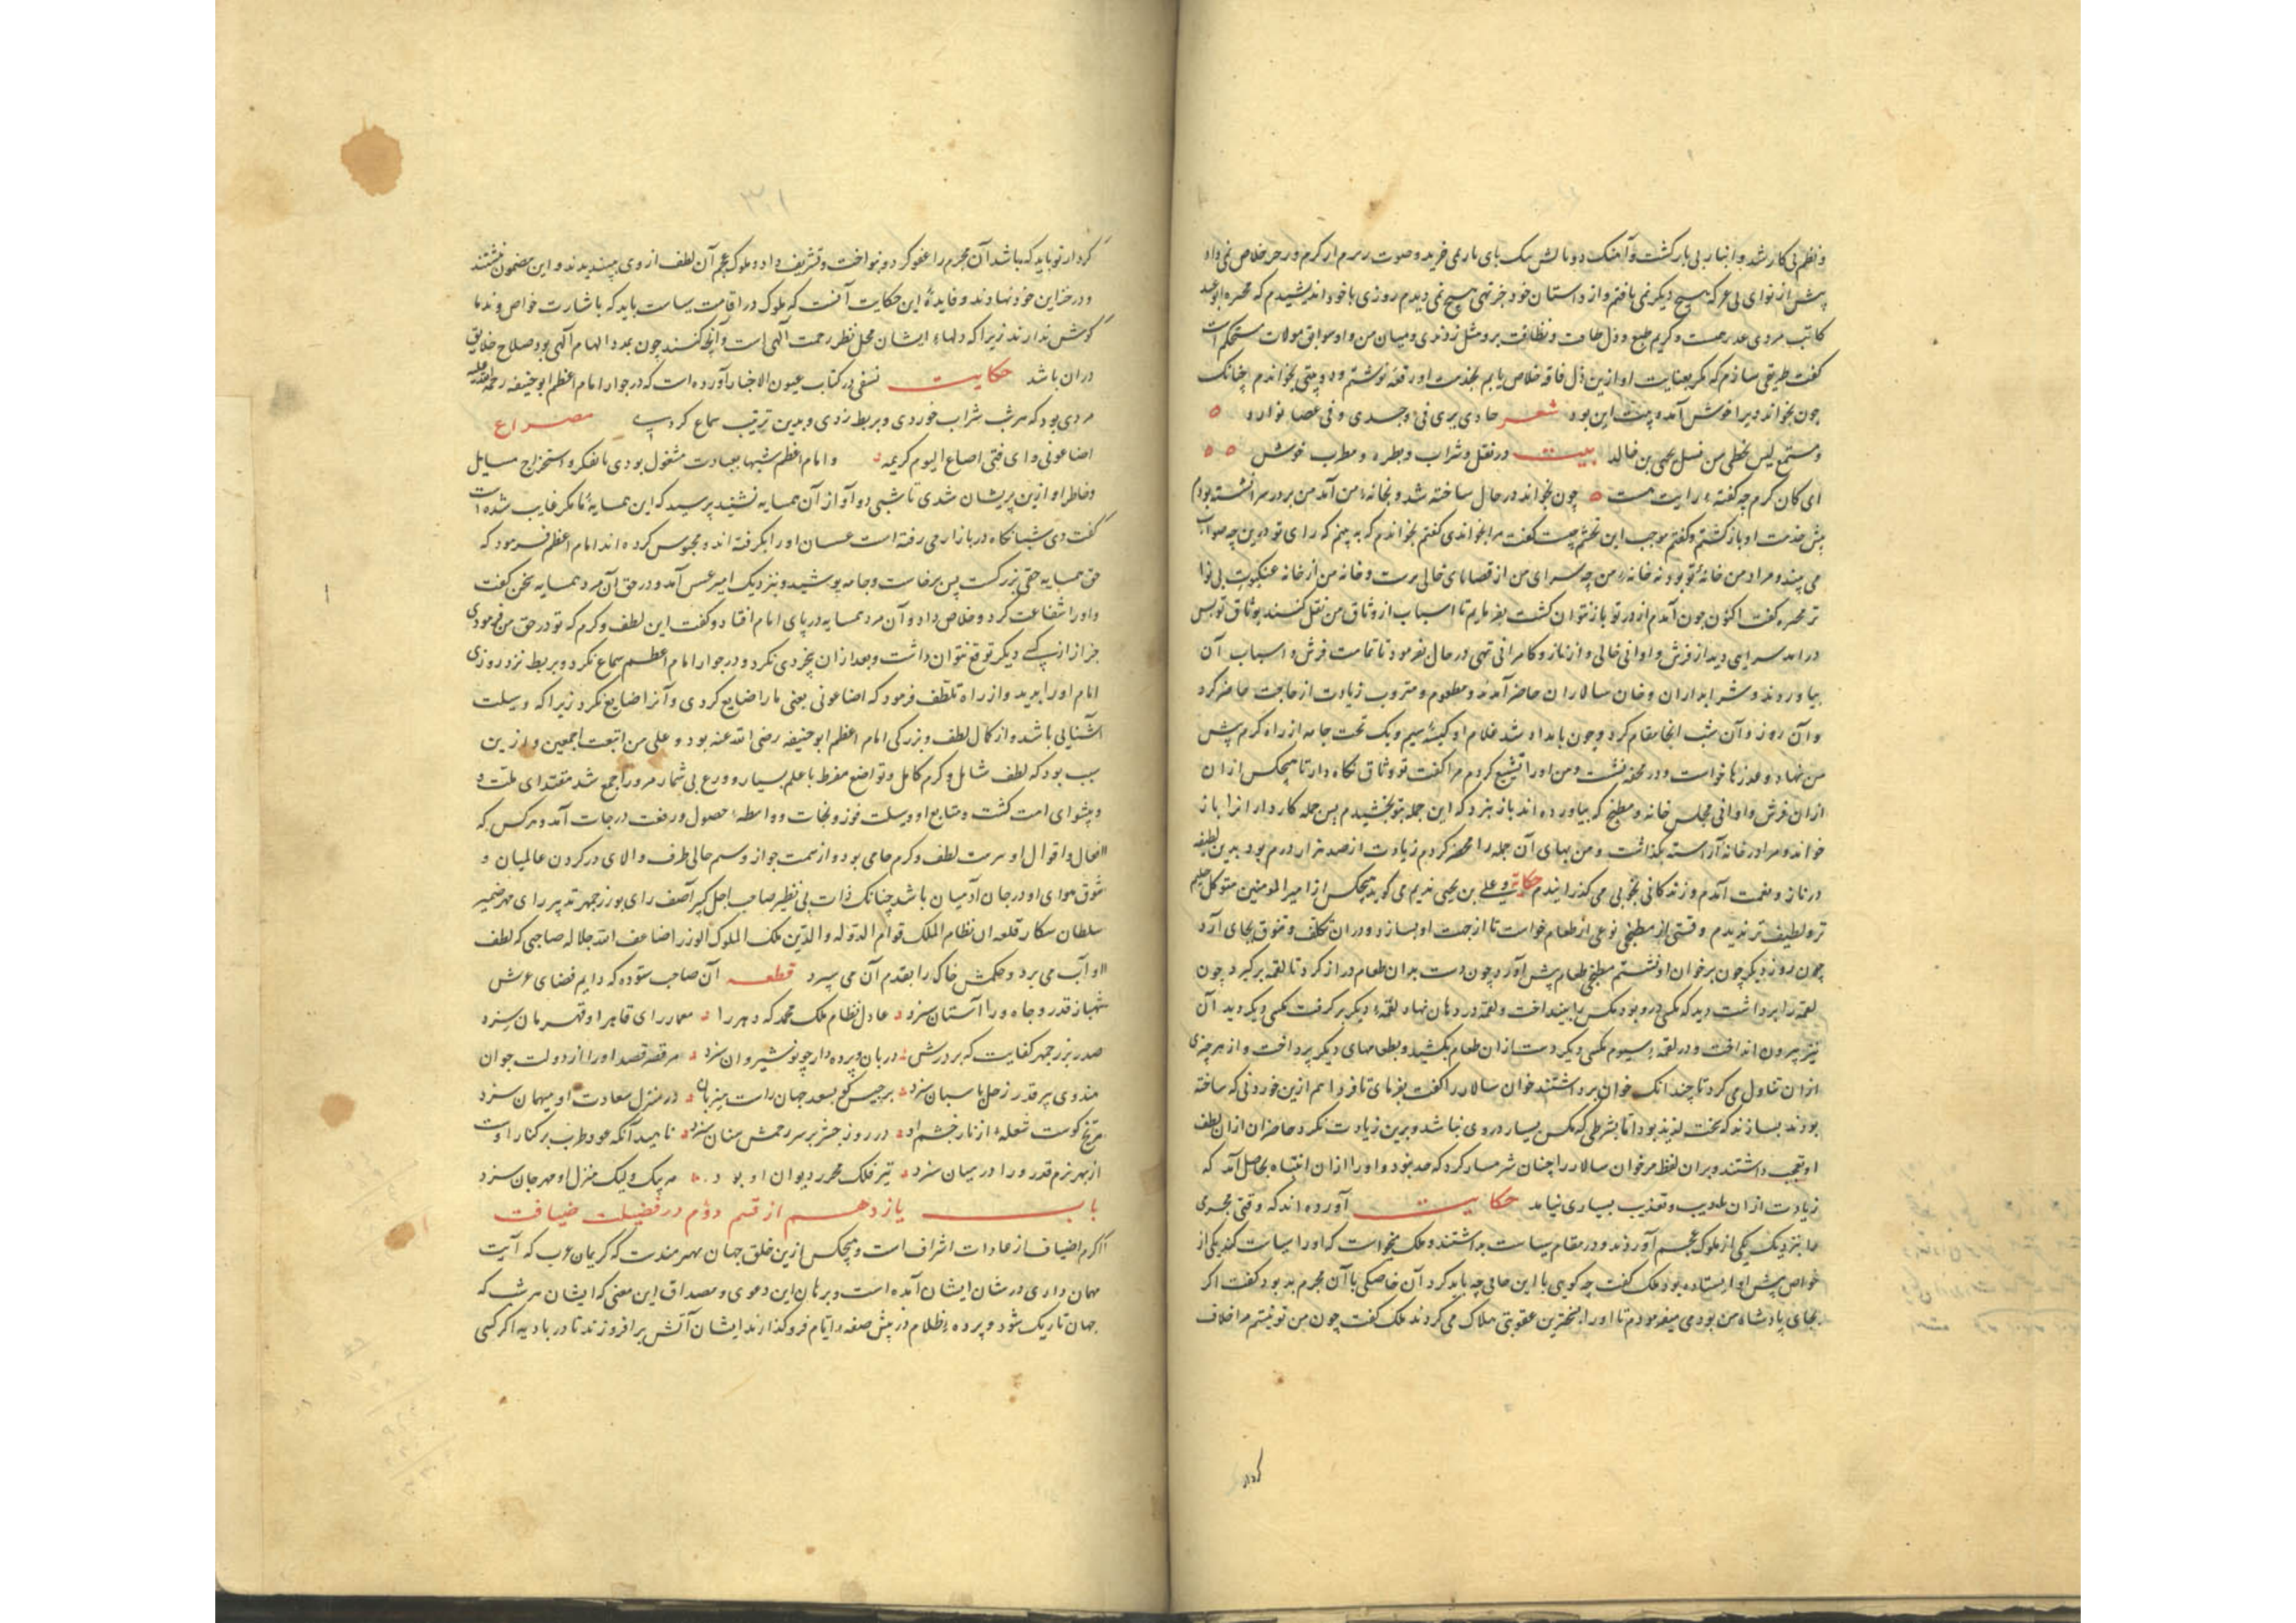 پیش از نوای بی عر که هیچ دیگر نمی یافتم و از داستان خود جز تهی هیچ نمی دیدم روزی با خود اندیشیدم که
کاتب مردی و کریم طبع و میان من و او سوابق موالات مستحکم است
گفت طریقی سازم که مگر بعنایت او ازین ذل فاقه خلاص یابم بخدمت او رقعه نوشتم و دو بیتی بخواندم چنانک
چون بخواند ویرا خوش آمد و بیت این بود شعر
و مستمع لیس یخطی من نسل یحیی بن خالد بیت در نقل و شراب و مطرب خوش
ای کان کرم چه گفته رایت هست چون بخواند در حال ساخته شد و بخانه من آمد من بر در سرا نشسته بودم
پیش خدمت او باز گشتم و گفتم موجب این تجشم چیست گفت مرا بخواندی گفتم بخواندم که به بینم که رای تو درین چه صواب
می بیند و مراد من خانه تو بود نه خانه من چه سرای من از خالی ترست و خانه من از خانه عنکبوت بی نوا
تر گفت اکنون چون آمدم از در تو باز نتوان گشت بفرمایم تا اسباب از وثاق من نقل کنند بوثاق تو پس
در آمد سرای دید از فرش و اوانی خالی و از ناز و کامرانی تهی در حال بفرمود تا تمامت فرش و اسباب آن
بیاوردند و شرابداران و خوان سالاران حاضر آمدند و مطعوم و مشروب زیادت از حاجت حاضر کرد
و آن روز و آن شب آنجا مقام کرد و چون بامداد شد غلام او کیسه سیم و یک تخت جامه از راه کرم پیش
من نهاد و عذرها خواست و در محفه نشست و من او را تشییع کردم مرا گفت تو وثاق نگاه دار تا هیچکس از ان
ازان فرش و اوانی مجلس خانه و مطبخ که بیاورده اند باز نبرد که این جمله بتو بخشیدم پس جمله کارداران را باز
خواند و مرا در خانه آراسته بگذاشت و من بهای آن جمله را کردم زیادت از صد هزار درم بود بدین لطیفه
در ناز و نعمت آمدم و زندگانی بخوبی می گذرانیدم حکایت و علی بن یحیی ندیم می گوید هیچکس از امیر المؤمنین متوکل حلیم
تر و لطیف تر ندیدم وقتی از مطبخی نوعی از طعام خواست تا از جهت او بسازد و در ان تکلف و تنوق بجای آرد
چون روز دیگر چون بر خوان او نشستم مطبخی طعام پیش آورد چون دست بدان طعام دراز کرد تا لقمه برگیرد چون
لقمه را برداشت دید که مگسی درو بود مگس را بینداخت و لقمه در دهان نهاد لقمه دیگر برگرفت مگسی دیگر دید آن
نیز بیرون انداخت و در لقمه سیوم مگسی دیگر دست ازان طعام بکشید و بطعامهای دیگر پرداخت و از هر چیزی
ازان تناول می کرد تا چندانک خوان برداشتند خوان سالار را گفت بفرمای تا فردا هم ازین خوردنی که ساخته
بودند بسازند که سخت لذیذ بود اما بشرطی که مگس بسیار در وی نباشد و برین زیادت نکرد حاضران ازان لطف
او تعجب داشتند و بران لفظ مر خوان سالار را چنان شرمسار کرد که حد نبود و او را ازان انتباه بحاصل آمد که
زیادت ازان بتادیب و تعذیب بسیاری نیامد حکایت آورده اند که وقتی مجرمی
را بنزدیک یکی از ملوک عجم آوردند و در مقام سیاست بداشتند و ملک میخواست که او را سیاست کند یکی از
خواص پیش او ایستاده بود ملک گفت چه گویی با این جانی چه باید کرد آن خاصگی با آن مجرم بد بود گفت اگر
بجای پادشاه من بودمی میفرمودم تا او را بسخترین عقوبتی هلاک می کردند ملک گفت چون من تو نیستم مرا خلاف
کردار
۳۰۱
کردار تو باید که باشد آن مجرم را عفو کرد و بنواخت و تشریف داد و ملوک عجم آن لطف از وی بپسندیدند و این مضمون نبشتند
و در خزاین خود نهادند و فایده این حکایت آنست که ملوک در اقامت سیاست باید که باشارت خواص و ندما
گوش ندارند زیرا که دلهاء ایشان محل نظر رحمت آلهی است و آنچ کنند چون بمدد الهام آلهی بود صلاح خلایق
دران باشد حکایت نسفی در کتاب عیون الاخبار آورده است که در جوار امام اعظم ابو حنیفه رحمة الله علیه
مردی بود که هر شب شراب خوردی و بربط زدی و بدین ترتیب سماع کردی مصراع
اضاعونی و ای فتی اضاعوا لیوم کریهه و امام اعظم شبها بعبادت مشغول بودی یا بفکر و استخراج مسایل
و خاطر او ازین پریشان شدی تا شبی دو آواز آن همسایه نشنید پرسید که این همسایه ما مگر غایب شده است
گفت دی شبانگاه در بازار می رفته است عسسان او را بگرفته اند و محبوس کرده اند امام اعظم فرمود که
حق همسایه حقی بزرگست پس برخاست و جامه پوشید و بنزدیک امیر عسس آمد و در حق آن مرد همسایه سخن گفت
و او را شفاعت کرد و خلاص داد و آن مرد همسایه در پای امام افتاد و گفت این لطف و کرم که تو در حق من فرمودی
جز از از کسی دیگر توقع نتوان داشت و بعد ازان نکرد و در جوار امام اعظم سماع نکرد و بربط نزد روزی
امام او را بدید و از راه تلطف فرمود که اضاعونی یعنی ما را ضایع کردی و آنرا ضایع نکرد زیرا که وسیلت
آشنایی باشد و از کمال لطف و بزرگی امام اعظم ابو حنیفه رضی الله عنه بود و علی من اتبعت اجمعین و ازین
سبب بود که لطف شامل و کرم کامل و تواضع مفرط با علم بسیار و ورع بی شمار مرورا جمع شد مقتدای ملت و
و پیشوای امت گشت و متابع او وسیلت فوز و نجات و واسطه حصول و رفعت درجات آمد و هر کس که
افعال و اقوال او سرمت لطف و کرم حامی بود و از سمت جواز وسم حالی طرف والای در گردن عالمیان و
شوق هوای او در جان آدمیان باشد چنانک ذات بی نظیر صاحب اجل کبیر آصف رای بوزرجمهر تدبیر رای مهر ضمیر
نظام الملک قوام الدوله والدین ملک الملوک الوزرا ضاعف الله جلاله صاحبی که لطف
او آب می برد و حکمش خاک را بقدم آن می سپرد قطعه آن صاحب ستوده که دایم فضای عرش
شهباز قدر و جاه ورا آستان سزد عادل نظام ملک محمد که دهر را معمار رای قاهر او قهرمان سزد
صدر بزرجمهر کفایت که بر درش دربان و پرده دار چو نوشیروان سزد هر قصر قصد او را از دولت جوان
هندوی پیر قدر زحل پاسبان سزد برجیس کو بسعد جهان راست میزبان در منزل سعادت او میهمان سزد
مریخ کوست شعله از نار خشم او در روز حشر بر سر رمحش سنان سزد ناهید آنکه عود طرب بر کنار اوست
از بهر بزم قدر ورا در میان سزد تیر فلک محرر دیوان او بود مه پیک و لیک منزل او مهرجان سزد
باب یازدهم از قسم دوم در فضیلت ضیافت
اکرام اضیاف از عادات اشراف است و هیچکس ازین خلق جهان بهره مندست که کریمان عرب که آیت
مهمان داری در شان ایشان آمده است و برهان این دعوی و مصداق این معنی که ایشان هر شب که
جهان تاریک شود و پرده ظلام در پیش صفه ایام فرو گذارند ایشان آتش بر افروزند تا در بادیه اگر کسی